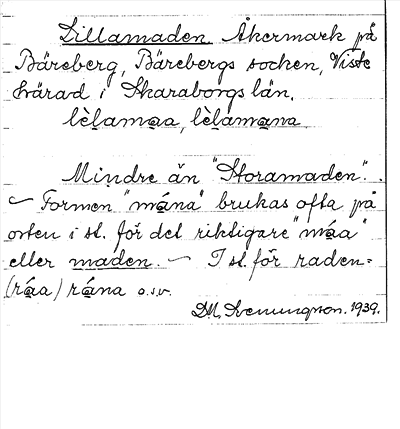 Lillamaden. Åkermark på
Bäreberg, Bärebergs socken, Viste
härad i Skaraborgs län.
lèlamaa, lèlamana
Mindre än "Storamaden".
— Formen "mána" brukas ofta på
orten i st. för det riktigare "máa"
eller maden. — I st. för raden =
(ráa) rána o.s.v.
1939.